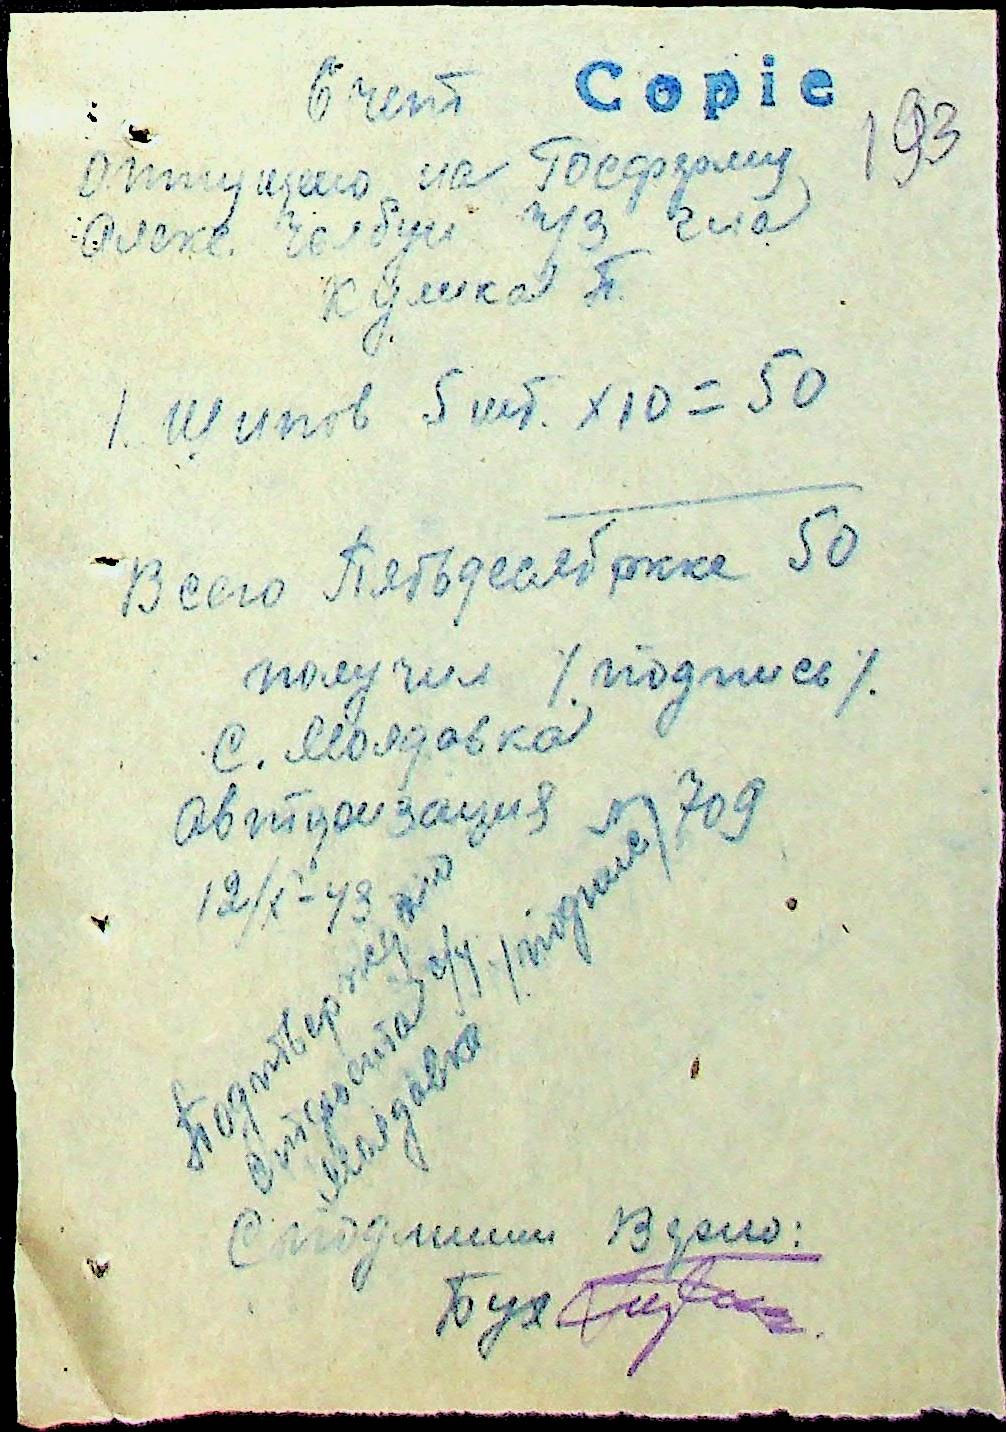 Счет Copie
193
отпущено на Госферму
Алекс. у/з г-на
Кулика П.
1. Щипов 5 шт. х 10 = 50
Всего Пятьдесят 50
получил /подпись/.
С. Молдовка
Авторизация № 709
12/X-43
Подтверждаю
Старшита с/у /подпись/
Молдовка
С подлинним Верно:
Бух